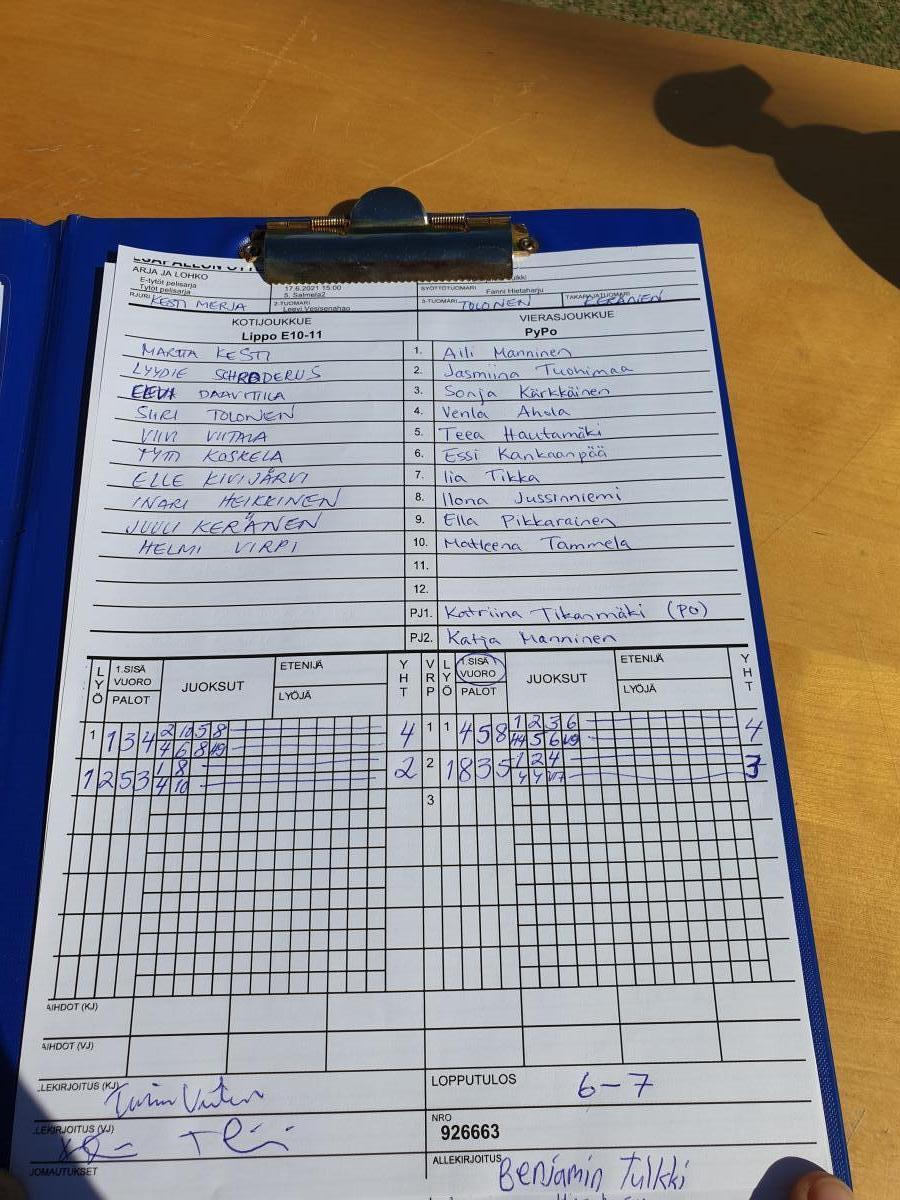 ARJA JA LOHKO
E-tytöt pelisarja
Tytöt pelisarja
17.6.2021 15:00
5. Salmela2
SYÖTTÖTUOMARI Fanni Hietaharju
KESTI MERJA
2-TUOMARI
3-TUOMARI TOLONEN
TAKARAJATUOMARI KERÄNEN
KOTIJOUKKUE VIERASJOUKKUE
Lippo E10-11 PyPo
MARTTA KESTI 1. Aili Manninen
LYYDIE SCHRODERUS 2. Jasmiina Tuohimaa
EEVI DAAVITTILA 3. Sonja Kärkkäinen
SIIRI TOLONEN 4. Venla Ahola
VIIVI VIITALA 5. Teea Hautamäki
TYTTI KOSKELA 6. Essi Kankaanpää
ELLE KIVIJÄRVI 7. Iia Tikka
INARI HEIKKINEN 8. Ilona Jussinniemi
JUULI KERÄNEN 9. Ella Pikkarainen
HELMI VIRPI 10. Matleena Tammela
11.
12.
PJ1. Katriina Tikanmäki (PO)
PJ2. Katja Manninen
LYÖ 1.SISÄ VUORO PALOT JUOKSUT ETENIJÄ LYÖJÄ YHT VRP LYÖ 1.SISÄ VUORO PALOT JUOKSUT ETENIJÄ LYÖJÄ YHT
1 1 3 4 2 10 5 8 4 1 1 4 5 8 1 2 3 6 4
4 6 8 5 6
1 2 5 3 1 8 2 2 1 8 3 5 1 2 4 3
4 10 4 4
3
AIHDOT (KJ)
AIHDOT (VJ)
LEKIRJOITUS (KJ)
LOPPUTULOS 6-7
LEKIRJOITUS (VJ)
NRO
926663
JOMAUTUKSET
ALLEKIRJOITUS Benjamin Tulkki